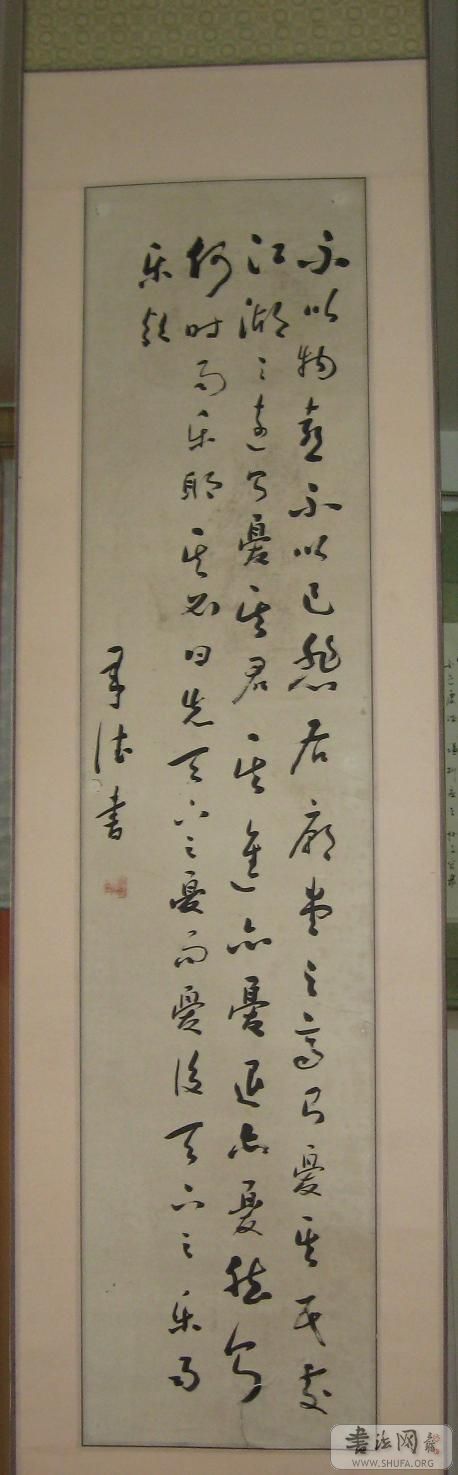 不以物喜不以己悲居廟堂之高则憂其民處
江湖之遠则憂其君是進亦憂退亦憂然则
何时而乐耶其必曰先天下之憂而憂後天下之乐而
乐欤
書
書法网
WWW.SHUFA.ORG